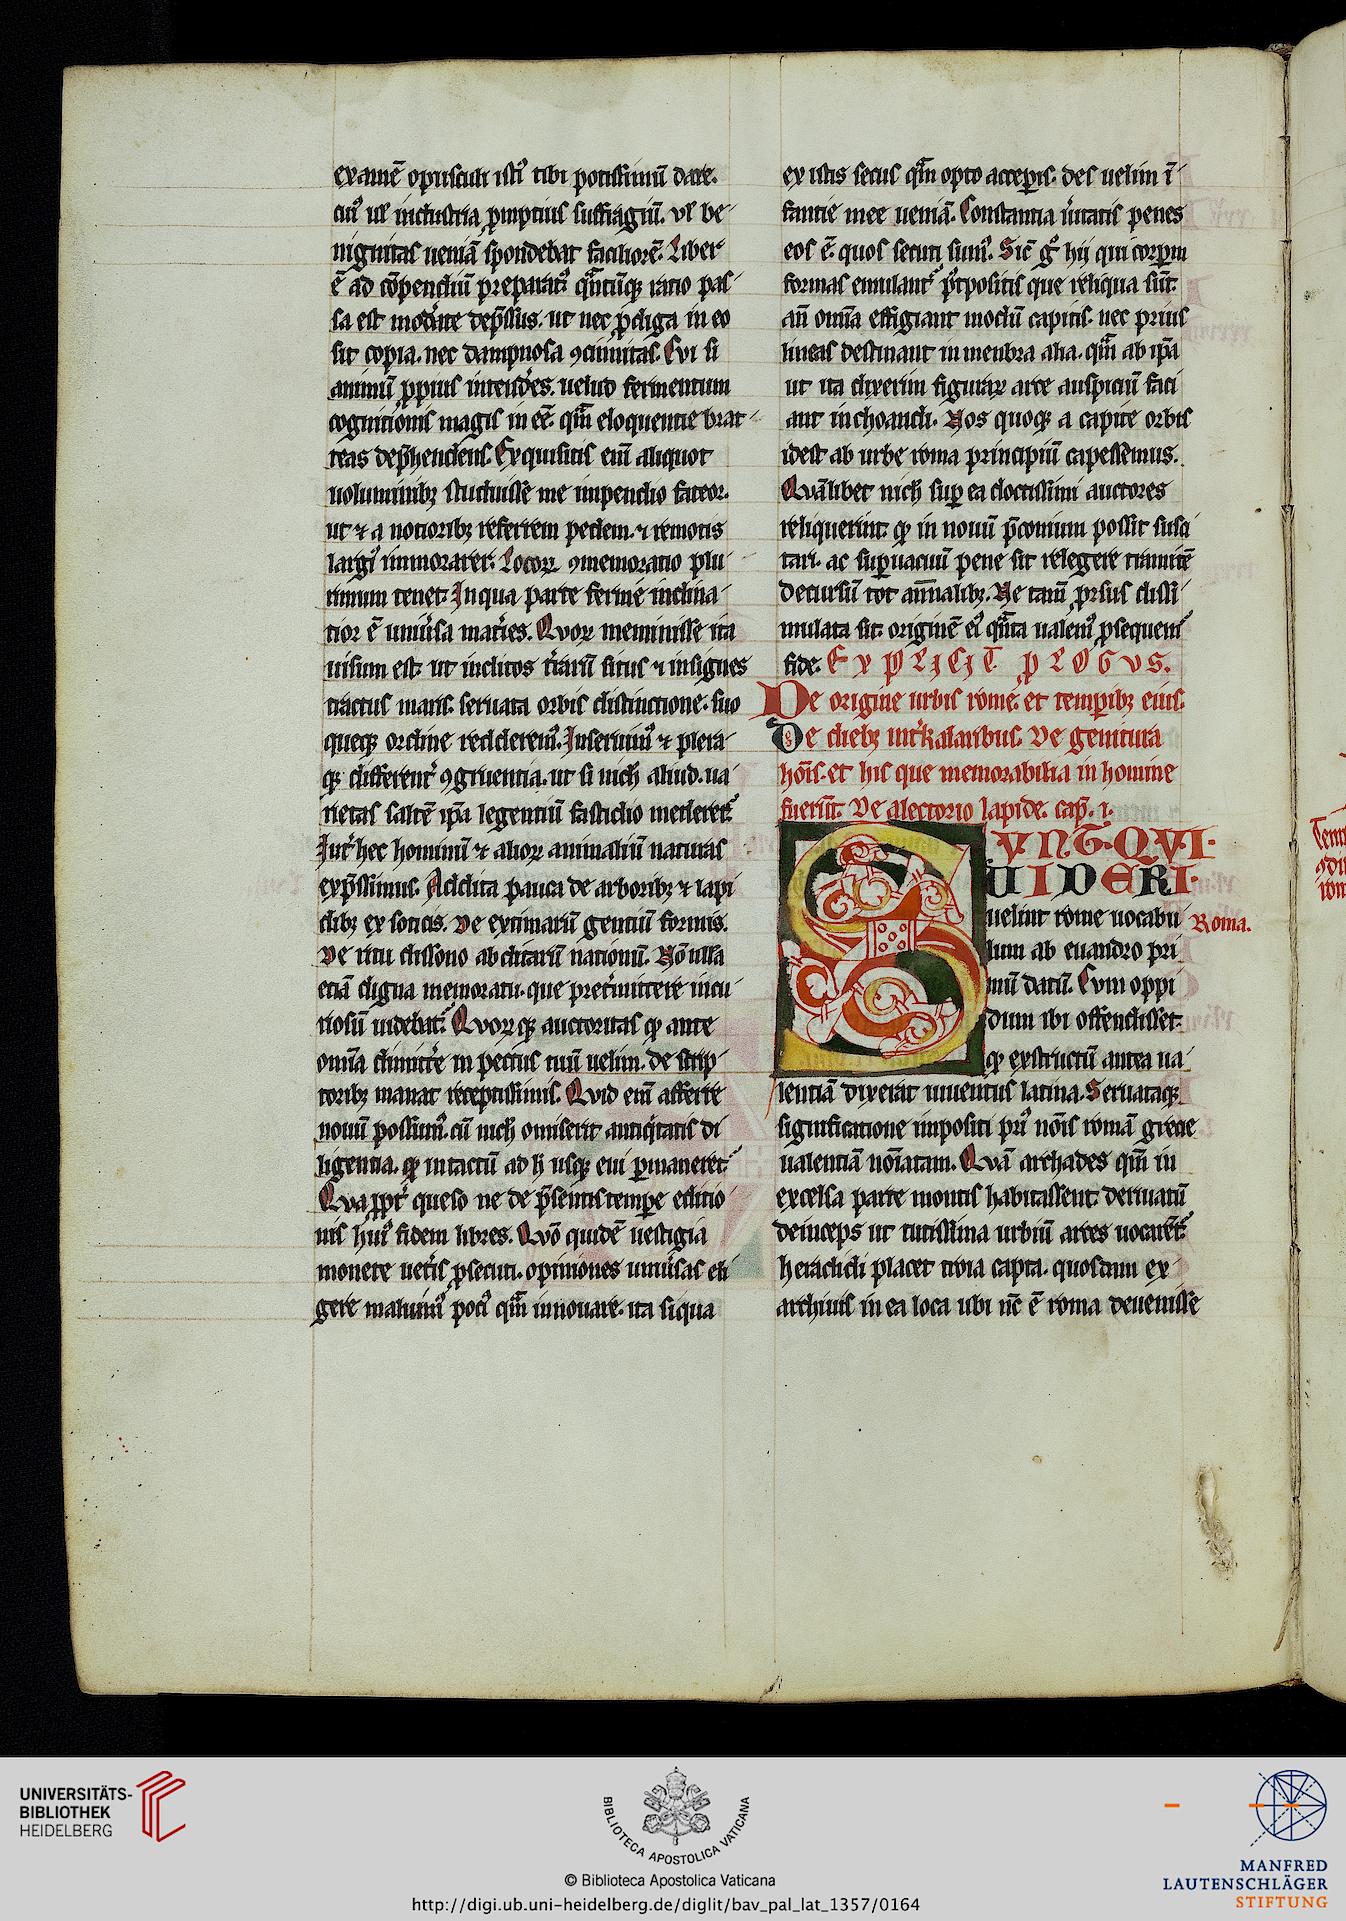 examē opusculi isti᷒ tibi potissimū dare.
cui᷒ ul̄ industria ꝓmptius suffragiū. ul̄ be-
nignitas ueniā spondebat faciliorē. Liber
ē ad cōpendiū preparat᷒ qͣntūqꝫ ratio pas-
sa est moderate dep̄ssus. ut nec ꝓdiga in eo
sit copia. nec dampnosa ꝯcinnitas. Cui si
animū ꝓpius intenderes. uelud fermentum
cognitionis magis in eē. qͣm eloquentie brat-
teas dep̄hendens. Exquisitis eni̅ aliquot
uoluminibꝫ studuisse me impendio fateor.
ut ⁊ a notioribꝫ referrem pedem. ⁊ remotis
largi᷒ immorarer. Locoꝝ ꝯmemoratio plu-
rimum tenet. In qua parte ferme inclina-
tior ē uniu̓sa mat̓ies. Quoꝝ meminisse ita
uisum est. ut inclitos t̓rarū situs ⁊ insignes
tractus maris. seruata orbis distinctione. suo
queqꝫ ordine redderem᷒. Inseruim᷒ ⁊ plera-
qꝫ different̓ ꝯgruentia. ut si nich aliud. ua-
rietas saltē ip̄a legentiū fastidio mederet̓.
Int̓ hec hominū ⁊ alioꝝ animaliū naturas
exp̄ssimus. Addita pauca de arboribꝫ ⁊ lapi
dibꝫ exoticis. De extimarū gentiū formis.
De ritu dissono abditarū nationū. Nōnulla
etiā digna memoratu. que pret̓mittere incu-
riosū uidebat̓. Quoꝝqꝫ auctoritas ꝙ ante
omīa dimitte̓ in pectus tuū uelim. de scrip-
toribꝫ manat receptissimis. Quid eni̅ afferre
nouū possum᷒. cū nich omiserit antiq̓tatis di
ligentia. ꝙ intactū ad h usqꝫ eui ꝑmaneret.
Quapp̄t̓ queso ne de p̄sentis tempe editio-
nis hui᷒ fidem libres. Quō quidē uestigia
monete uet̓is ꝓsecuti. opiniones uniu̓sas eli
gere maluim᷒ poci᷒ qͣm innouare. ita siqua
ex istis secus qͣm opto acceperis. des uelim ī-
fantie mee ueniā. Constantia u̓itatis penes
eos ē. quos secuti sum᷒. Sic̄ g̊ hii qui corpm
formas emulant̓ p̓tpositis que reliqua sūt.
an̄ omīa effigiant modū capitis. nec prius
lineas destinant in menbra alia. qͣm ab ip̄a
ut ita dixerim figuraꝝ arce auspiciū faci
ant inchoandi. Nos quoqꝫ a capite orbis
idest ab urbe roma principiū capessemus.
Quālibet nich suꝑ ea doctissimi auctores
reliquerint. ꝙ in nouū p̄conium possit susci
tari. ac suꝑuacuū pene sit relegere tramitē
decursū tot an̄nalibꝫ. Ne tamē ꝓrsus dissi-
mulata sit. originē ei᷒ qͣnta ualem᷒ ꝓsequem̓
fide. EXPLICIT PLOGVS.
De origine urbis rome. et temporibꝫ eius.
De diebꝫ int̓kalaribus. De genitura
hōis. et his que memorabilia in homine
fueriīt. De alectorio lapide. cap̄. i.
SVNT. QVI.
UIDERI.
uelint rome uocabu Roma.
lum ab euandro pri
mū datū. Cum oppi
dum ibi offendisset.
ꝙ exstructū antea ua-
lentiā dixerat iuuentus latina. Seruataqꝫ
significatione impositi pri᷒ nōis romā grece
ualentiā nōiatam. Quā archades qm̄ in
excelsa parte montis habitassent. deriuatū
deinceps ut tutissima urbiū arces uocarēt̓.
heraclidi placet troia capta. quosdam ex
archiuis in ea loca ubi nc̄ ē roma deuenisse
UNIVERSITÄTS-
BIBLIOTHEK
HEIDELBERG
BIBLIOTECA APOSTOLICA VATICANA
© Biblioteca Apostolica Vaticana
http://digi.ub.uni-heidelberg.de/diglit/bav_pal_lat_1357/0164
MANFRED
LAUTENSCHLÄGER
STIFTUNG